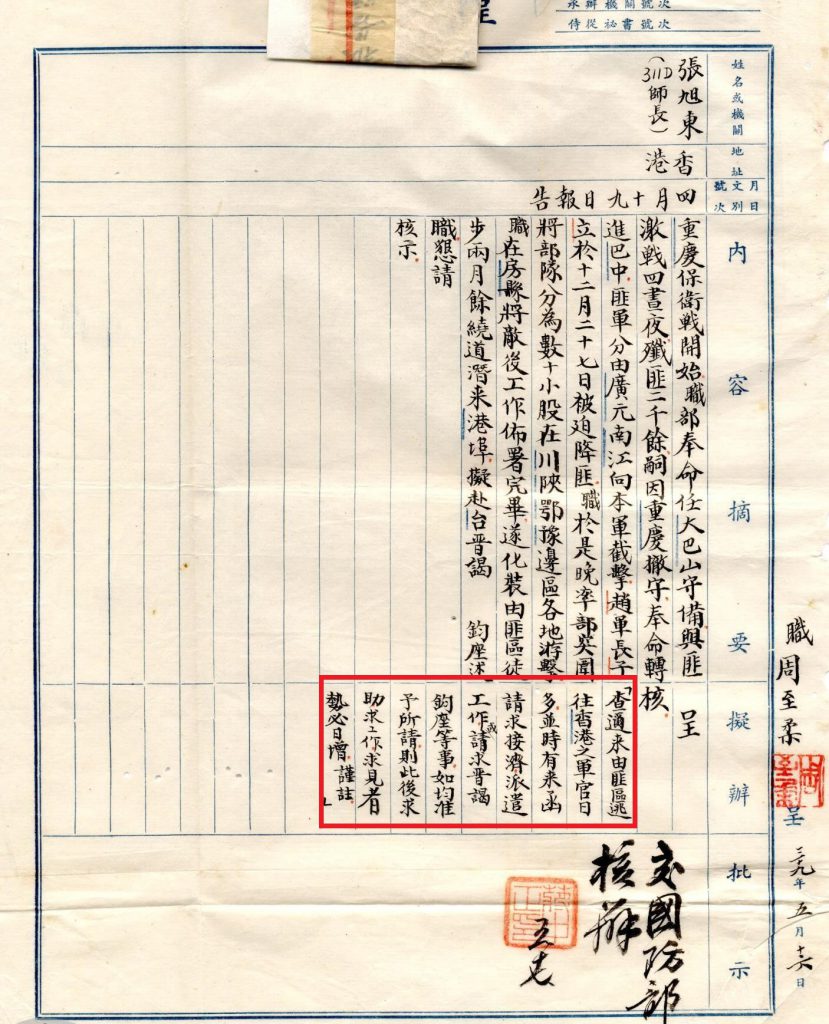 承辦機關號次
侍從祕書號次
職周至柔呈 三九年五月十六日
姓名或機關
地址
月日
文別
號次
內容摘要
擬辦
批示
張旭東
(311D師長)
香港
四月十九日報告
重慶保衛戰開始職部奉命任大巴山守備與匪
激戰四晝夜殲匪二千餘嗣因重慶撤守奉命轉
進巴中匪軍分由廣元南江向本軍截擊趙軍長子
立於十二月二十七日被迫降匪職於是晚率部突圍
將部隊分為數十小股在川陝鄂豫邊區各地游擊
職在房縣將敵後工作佈署完畢遂化裝由匪區徒
步兩月餘繞道潛來港埠擬赴台晉謁 鈞座述
職懇請
核示
呈
核
「查邇來由匪區逃
往香港之軍官日
多並時有來函
請求接濟派遣
工作或請求晉謁
鈞座等事如均准
予所請則此後求
助求工作求見者
勢必日增謹註」
交國防部
核辦
蔣中正印